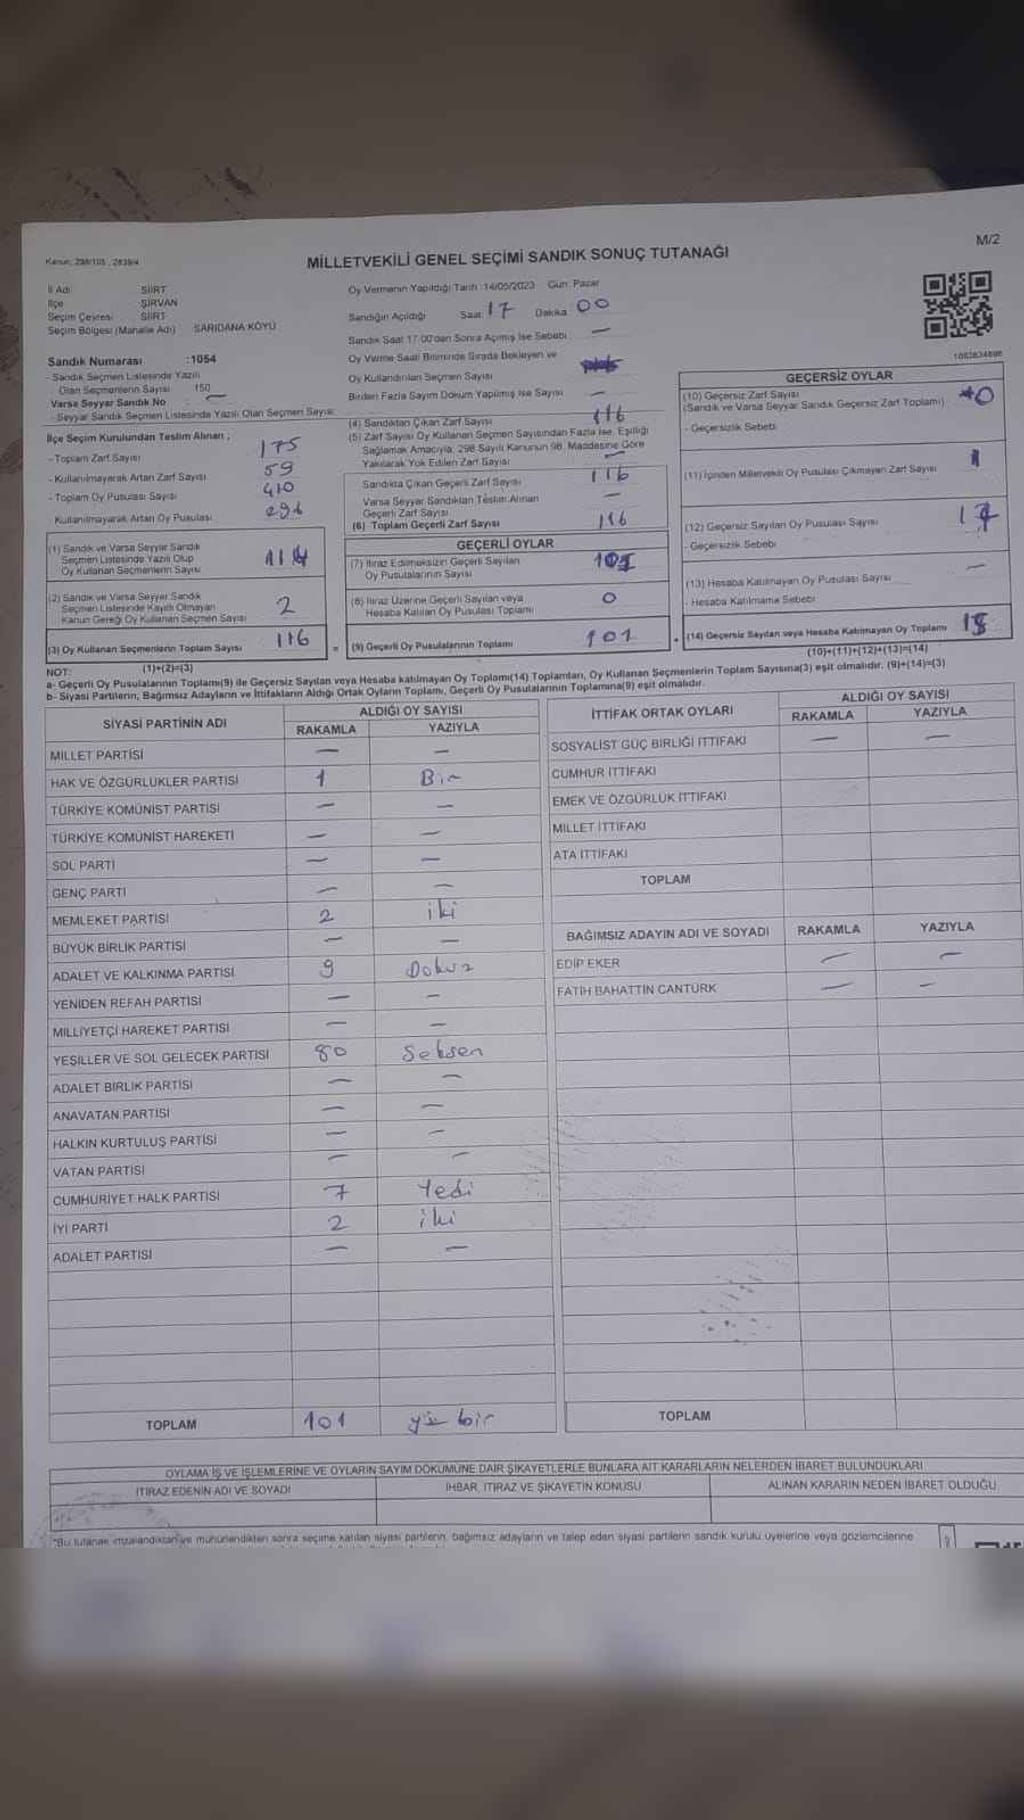 M/2
Kanun: 298/105 , 2839/4
MİLLETVEKİLİ GENEL SEÇİMİ SANDIK SONUÇ TUTANAĞI
İl Adı SİİRT
İlçe ŞİRVAN
Seçim Çevresi SİİRT
Seçim Bölgesi (Mahalle Adı) SARIDANA KÖYÜ
Sandık Numarası :1054
- Sandık Seçmen Listesinde Yazılı
Olan Seçmenlerin Sayısı 150
Varsa Seyyar Sandık No —
- Seyyar Sandık Seçmen Listesinde Yazılı Olan Seçmen Sayısı:
İlçe Seçim Kurulundan Teslim Alınan ;
- Toplam Zarf Sayısı 175
- Kullanılmayarak Artan Zarf Sayısı 59
- Toplam Oy Pusulası Sayısı 410
Kullanılmayarak Artan Oy Pusulası 294
(1) Sandık ve Varsa Seyyar Sandık
Seçmen Listesinde Yazılı Olup
Oy Kullanan Seçmenlerin Sayısı 114
(2) Sandık ve Varsa Seyyar Sandık
Seçmen Listesinde Kayıtlı Olmayan
Kanun Gereği Oy Kullanan Seçmen Sayısı 2
(3) Oy Kullanan Seçmenlerin Toplam Sayısı 116
(1)+(2)=(3)
Oy Vermenin Yapıldığı Tarih :14/05/2023 Gün: Pazar
Sandığın Açıldığı Saat: 17 Dakika: 00
Sandık Saat 17:00'den Sonra Açılmış İse Sebebi: —
Oy Verme Saati Bitiminde Sırada Bekleyen ve
Oy Kullandırılan Seçmen Sayısı
Birden Fazla Sayım Döküm Yapılmış İse Sayısı —
(4) Sandıktan Çıkan Zarf Sayısı 116
(5) Zarf Sayısı Oy Kullanan Seçmen Sayısından Fazla İse, Eşitliği
Sağlamak Amacıyla, 298 Sayılı Kanunun 98. Maddesine Göre
Yakılarak Yok Edilen Zarf Sayısı —
Sandıkta Çıkan Geçerli Zarf Sayısı 116
Varsa Seyyar Sandıktan Teslim Alınan
Geçerli Zarf Sayısı —
(6) Toplam Geçerli Zarf Sayısı 116
GEÇERLİ OYLAR
(7) İtiraz Edilmeksizin Geçerli Sayılan
Oy Pusulalarının Sayısı 101
(8) İtiraz Üzerine Geçerli Sayılan veya
Hesaba Katılan Oy Pusulası Toplamı 0
= (9) Geçerli Oy Pusulalarının Toplamı 101
GEÇERSİZ OYLAR
(10) Geçersiz Zarf Sayısı 0
(Sandık ve Varsa Seyyar Sandık Geçersiz Zarf Toplamı)
- Geçersizlik Sebebi:
(11) İçinden Milletvekili Oy Pusulası Çıkmayan Zarf Sayısı 1
(12) Geçersiz Sayılan Oy Pusulası Sayısı
- Geçersizlik Sebebi:
(13) Hesaba Katılmayan Oy Pusulası Sayısı —
- Hesaba Katılmama Sebebi:
+ (14) Geçersiz Sayılan veya Hesaba Katılmayan Oy Toplamı 15
(10)+(11)+(12)+(13)=(14)
NOT:
a- Geçerli Oy Pusulalarının Toplamı(9) ile Geçersiz Sayılan veya Hesaba katılmayan Oy Toplamı(14) Toplamları, Oy Kullanan Seçmenlerin Toplam Sayısına(3) eşit olmalıdır. (9)+(14)=(3)
b- Siyasi Partilerin, Bağımsız Adayların ve İttifakların Aldığı Ortak Oyların Toplamı, Geçerli Oy Pusulalarının Toplamına(9) eşit olmalıdır.
SİYASİ PARTİNİN ADI ALDIĞI OY SAYISI
RAKAMLA YAZIYLA
MİLLET PARTİSİ — —
HAK VE ÖZGÜRLÜKLER PARTİSİ 1 Bir
TÜRKİYE KOMÜNİST PARTİSİ — —
TÜRKİYE KOMÜNİST HAREKETİ — —
SOL PARTİ — —
GENÇ PARTİ — —
MEMLEKET PARTİSİ 2 iki
BÜYÜK BİRLİK PARTİSİ — —
ADALET VE KALKINMA PARTİSİ 9 Dokuz
YENİDEN REFAH PARTİSİ — —
MİLLİYETÇİ HAREKET PARTİSİ — —
YEŞİLLER VE SOL GELECEK PARTİSİ 80 Seksen
ADALET BİRLİK PARTİSİ — —
ANAVATAN PARTİSİ — —
HALKIN KURTULUŞ PARTİSİ — —
VATAN PARTİSİ — —
CUMHURİYET HALK PARTİSİ 7 Yedi
İYİ PARTİ 2 iki
ADALET PARTİSİ — —
TOPLAM 101 yüz bir
İTTİFAK ORTAK OYLARI ALDIĞI OY SAYISI
RAKAMLA YAZIYLA
SOSYALİST GÜÇ BİRLİĞİ İTTİFAKI — —
CUMHUR İTTİFAKI
EMEK VE ÖZGÜRLÜK İTTİFAKI
MİLLET İTTİFAKI
ATA İTTİFAKI
TOPLAM
BAĞIMSIZ ADAYIN ADI VE SOYADI RAKAMLA YAZIYLA
EDİP EKER — —
FATİH BAHATTİN CANTÜRK — —
TOPLAM
OYLAMA İŞ VE İŞLEMLERİNE VE OYLARIN SAYIM DÖKÜMÜNE DAİR ŞİKAYETLERLE BUNLARA AİT KARARLARIN NELERDEN İBARET BULUNDUKLARI
İTİRAZ EDENİN ADI VE SOYADI İHBAR, İTİRAZ VE ŞİKAYETİN KONUSU ALINAN KARARIN NEDEN İBARET OLDUĞU
*Bu tutanak imzalandıktan ve mühürlendikten sonra seçime katılan siyasi partilerin, bağımsız adayların ve talep eden siyasi partilerin sandık kurulu üyelerine veya gözlemcilerine